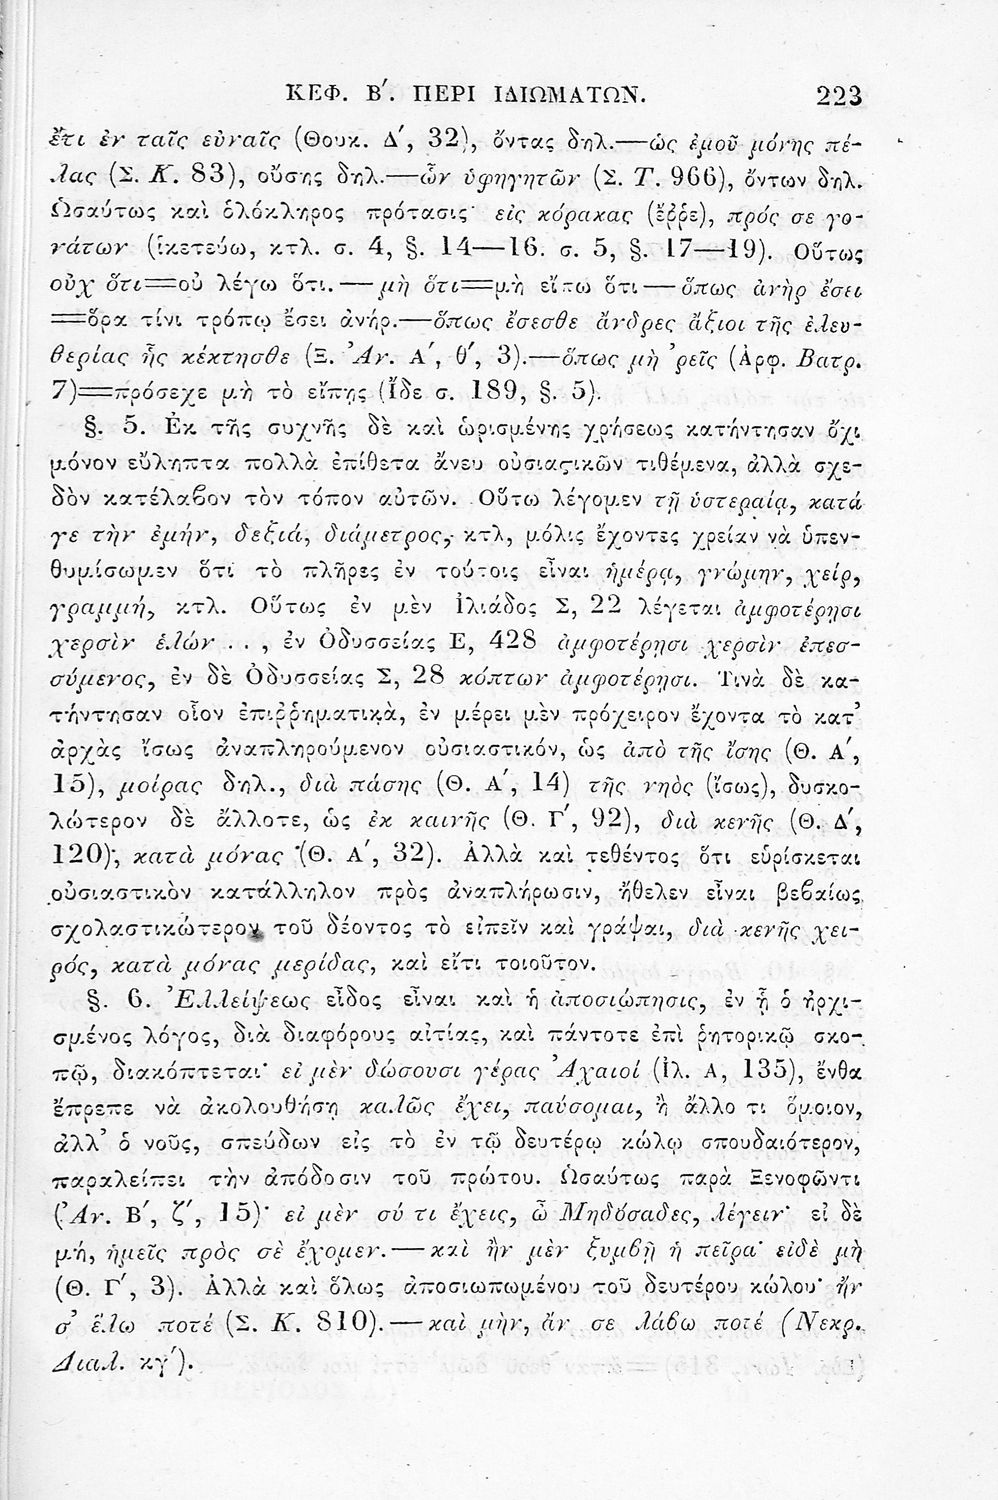 ΚΕΦ. Β΄. ΠΕΡΙ ΙΔΙΩΜΑΤΩΝ. 223
ἔτι ἐν ταῖς εὐναῖς (Θουκ. Δ΄, 32), ὄντας δηλ.—ὡς ἐμοῦ μόνης πέ-
λας (Σ. Κ. 83), οὔσης δηλ.—ὧν ὑφηγητῶν (Σ. Τ. 966), ὄντων δηλ.
Ὡσαύτως καὶ ὁλόκληρος πρότασις· εἰς κόρακας (ἔῤῥε), πρός σε γο-
νάτων (ἱκετεύω, κτλ. σ. 4, §. 14—16. σ. 5, §. 17—19). Οὕτως
οὐχ ὅτι=οὐ λέγω ὅτι.—μὴ ὅτι=μὴ εἴπω ὅτι—ὅπως ἀνὴρ ἔσει
=ὅρα τίνι τρόπῳ ἔσει ἀνήρ.—ὅπως ἔσεσθε ἄνδρες ἄξιοι τῆς ἐλευ-
θερίας ἧς κέκτησθε (Ξ. Ἀν. Α΄, θ΄, 3).—ὅπως μὴ ᾽ρεῖς (Ἀρφ. Βατρ.
7)=πρόσεχε μὴ τὸ εἴπῃς (Ἴδε σ. 189, §. 5).
§. 5. Ἐκ τῆς συχνῆς δὲ καὶ ὡρισμένης χρήσεως κατήντησαν ὄχι
μόνον εὔληπτα πολλὰ ἐπίθετα ἄνευ οὐσιαϛικῶν τιθέμενα, ἀλλὰ σχε-
δὸν κατέλαβον τὸν τόπον αὐτῶν. Οὕτω λέγομεν τῇ ὑστεραίᾳ, κατά
γε τὴν ἐμήν, δεξιά, διάμετρος, κτλ, μόλις ἔχοντες χρείαν νὰ ὑπεν-
θυμίσωμεν ὅτι τὸ πλῆρες ἐν τούτοις εἶναι ἡμέρᾳ, γνώμην, χείρ,
γραμμή, κτλ. Οὕτως ἐν μὲν Ἰλιάδος Σ, 22 λέγεται ἀμφοτέρῃσι
χερσὶν ἑλών . . , ἐν Ὀδυσσείας Ε, 428 ἀμφοτέρῃσι χερσὶν ἐπεσ-
σύμενος, ἐν δὲ Ὀδυσσείας Σ, 28 κόπτων ἀμφοτέρῃσι. Τινὰ δὲ κα-
τήντησαν οἷον ἐπιῤῥηματικά, ἐν μέρει μὲν πρόχειρον ἔχοντα τὸ κατ᾽
ἀρχὰς ἴσως ἀναπληρούμενον οὐσιαστικόν, ὡς ἀπὸ τῆς ἴσης (Θ. Α΄,
15), μοίρας δηλ., διὰ πάσης (Θ. Α΄, 14) τῆς νηὸς (ἴσως), δυσκο-
λώτερον δὲ ἄλλοτε, ὡς ἐκ καινῆς (Θ. Γ΄, 92), διὰ κενῆς (Θ. Δ΄,
120), κατὰ μόνας (Θ. Α΄, 32). Ἀλλὰ καὶ τεθέντος ὅτι εὑρίσκεται
οὐσιαστικὸν κατάλληλον πρὸς ἀναπλήρωσιν, ἤθελεν εἶναι βεβαίως
σχολαστικώτερον τοῦ δέοντος τὸ εἰπεῖν καὶ γράψαι, διὰ κενῆς χει-
ρός, κατὰ μόνας μερίδας, καὶ εἴτι τοιοῦτον.
§. 6. Ἐλλείψεως εἶδος εἶναι καὶ ἡ ἀποσιώπησις, ἐν ᾗ ὁ ἠρχι-
σμένος λόγος, διὰ διαφόρους αἰτίας, καὶ πάντοτε ἐπὶ ῥητορικῷ σκο-
πῷ, διακόπτεται· εἰ μὲν δώσουσι γέρας Ἀχαιοί (Ἰλ. Α, 135), ἔνθα
ἔπρεπε νὰ ἀκολουθήσῃ καλῶς ἔχει, παύσομαι, ἢ ἄλλο τι ὅμοιον,
ἀλλ᾽ ὁ νοῦς, σπεύδων εἰς τὸ ἐν τῷ δευτέρῳ κώλῳ σπουδαιότερον,
παραλείπει τὴν ἀπόδοσιν τοῦ πρώτου. Ὡσαύτως παρὰ Ξενοφῶντι
(Ἀν. Β΄, ζ΄, 15)· εἰ μὲν σύ τι ἔχεις, ὦ Μηδόσαδες, λέγειν· εἰ δὲ
μή, ἡμεῖς πρὸς σὲ ἔχομεν.—καὶ ἢν μὲν ξυμβῇ ἡ πεῖρα· εἰδὲ μὴ
(Θ. Γ΄, 3). Ἀλλὰ καὶ ὅλως ἀποσιωπωμένου τοῦ δευτέρου κώλου· ἤν
σ᾽ ἕλω ποτέ (Σ. Κ. 810).—καὶ μὴν, ἄν σε λάβω ποτέ (Νεκρ.
Διαλ. κγ΄).